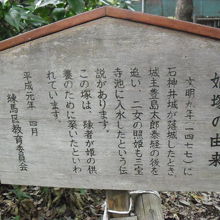 姫塚の由来
文明九年(一四七七)に
石神井城が落城したとき、
城主豊島太郎泰経の後を
追い、二女の照姫も三宝
寺池に入水したという伝
説があります。
この塚は、縁者が姫の供
養のために築いたといわ
れています。
平成元年 四月
練馬区教育委員会